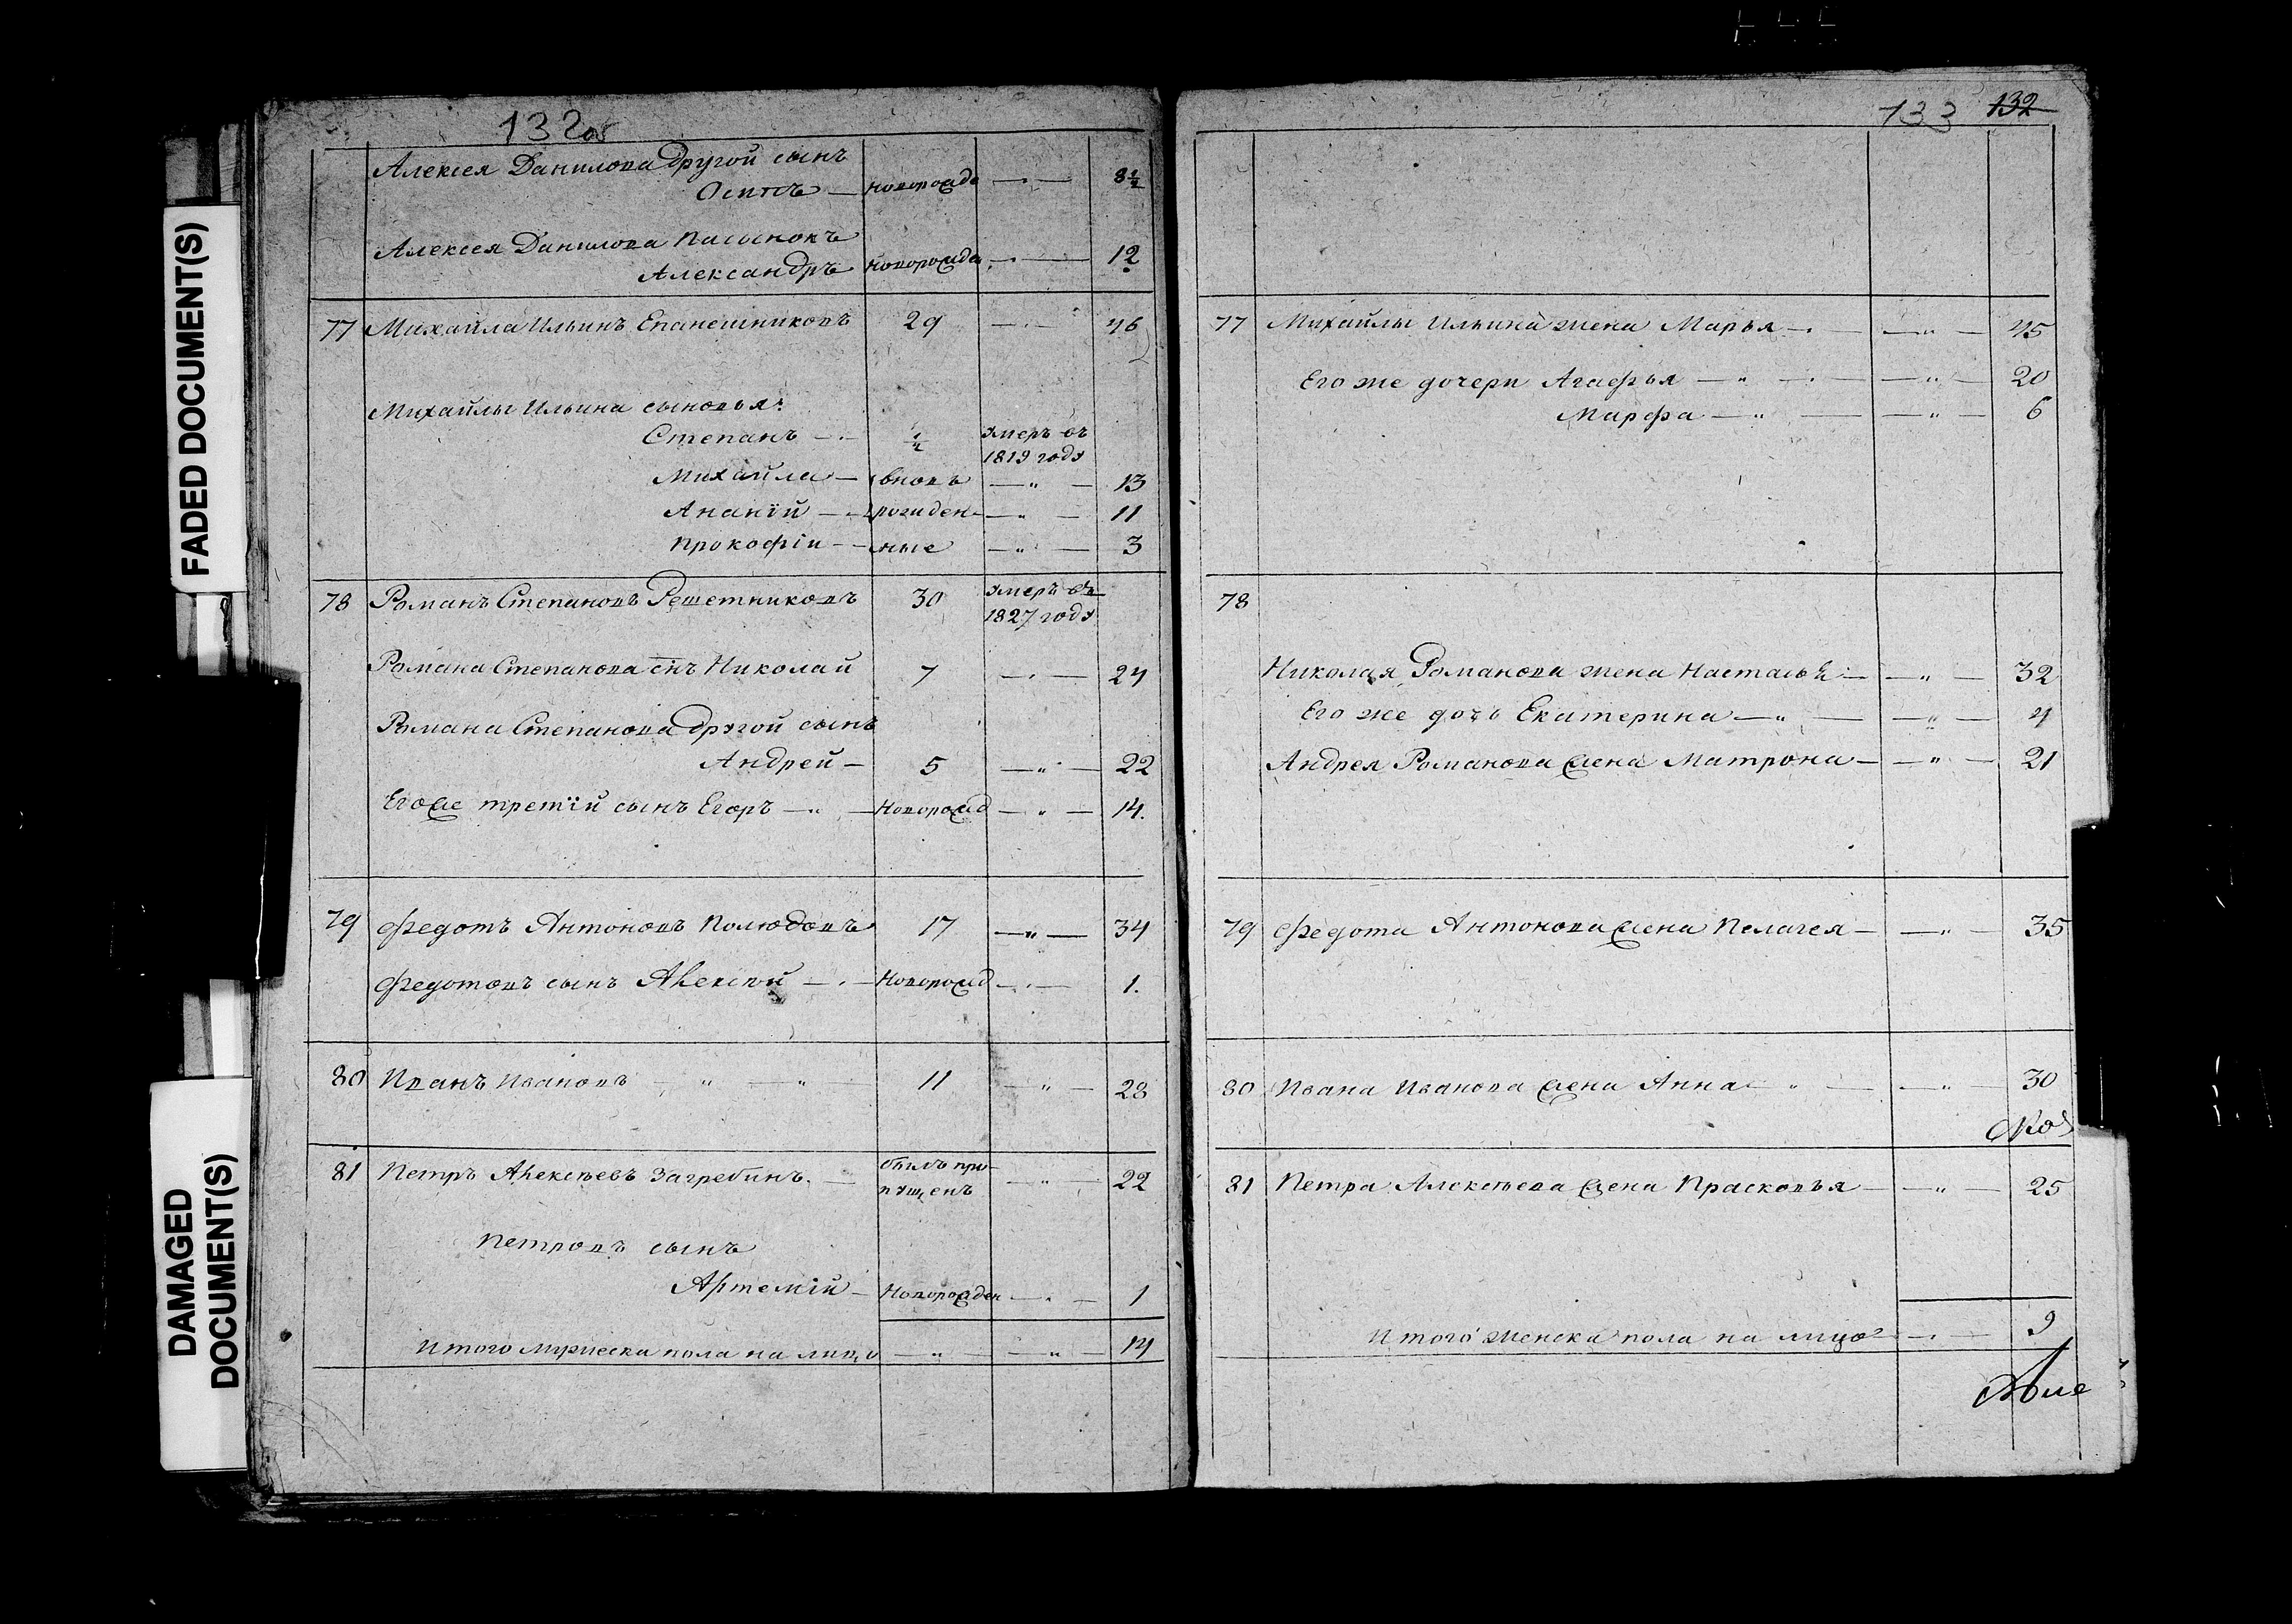 FADED DOCUMENT(S)
DAMAGED
DOCUMENT(S)
132об
Алексея Данилова другой сынъ
Осипъ — новорожде — 8½
Алексея Данилова пасынокъ
Александръ новорожде — 12
77 Михайла Ильинъ Епанешниковъ 29 — 46
Михайлы Ильина сыновья:
Степанъ — ½ умеръ въ
1819 году
Михайла — вновь — " — 13
Ананій — рожден- — " — 11
Прокофіи — ные — " — 3
78 Романъ Степановъ Решетниковъ 30 умеръ въ
1827 году
Романа Степанова снъ Николай 7 — 24
Романа Степанова другой сынъ
Андрей — 5 — " — 22
Егоже третій сынъ Егоръ — " — Новорожд — " — 14.
79 Федотъ Антоновъ Полюдовъ 17 — " — 34
Федотовъ сынъ Алексей — Новорожд — 1.
80 Иванъ Ивановъ — " — " 11 — " — 28
81 Петръ Алексѣевъ Загребинъ. — былъ про-
пущенъ — " — 22
Петровъ сынъ
Артемій — Новорожден — 1
Итого мужеска пола на лицо — " — " — 14
133 132
77 Михайлы Ильина жена Марья — " — 45
Его же дочери Агафья — " — " — 20
Марфа — " — " — 6
78
Николая Романова жена Настасья — " — 32
Его же дочь Екатерина — " — " — 4
Андрея Романова жена Матрона — " — 21
79 Федота Антонова жена Пелагея — " — 35
80 Ивана Иванова жена Анна — " — " 30
81 Петра Алексѣева жена Прасковья — " — 25
Итого женска пола на лицо — 9